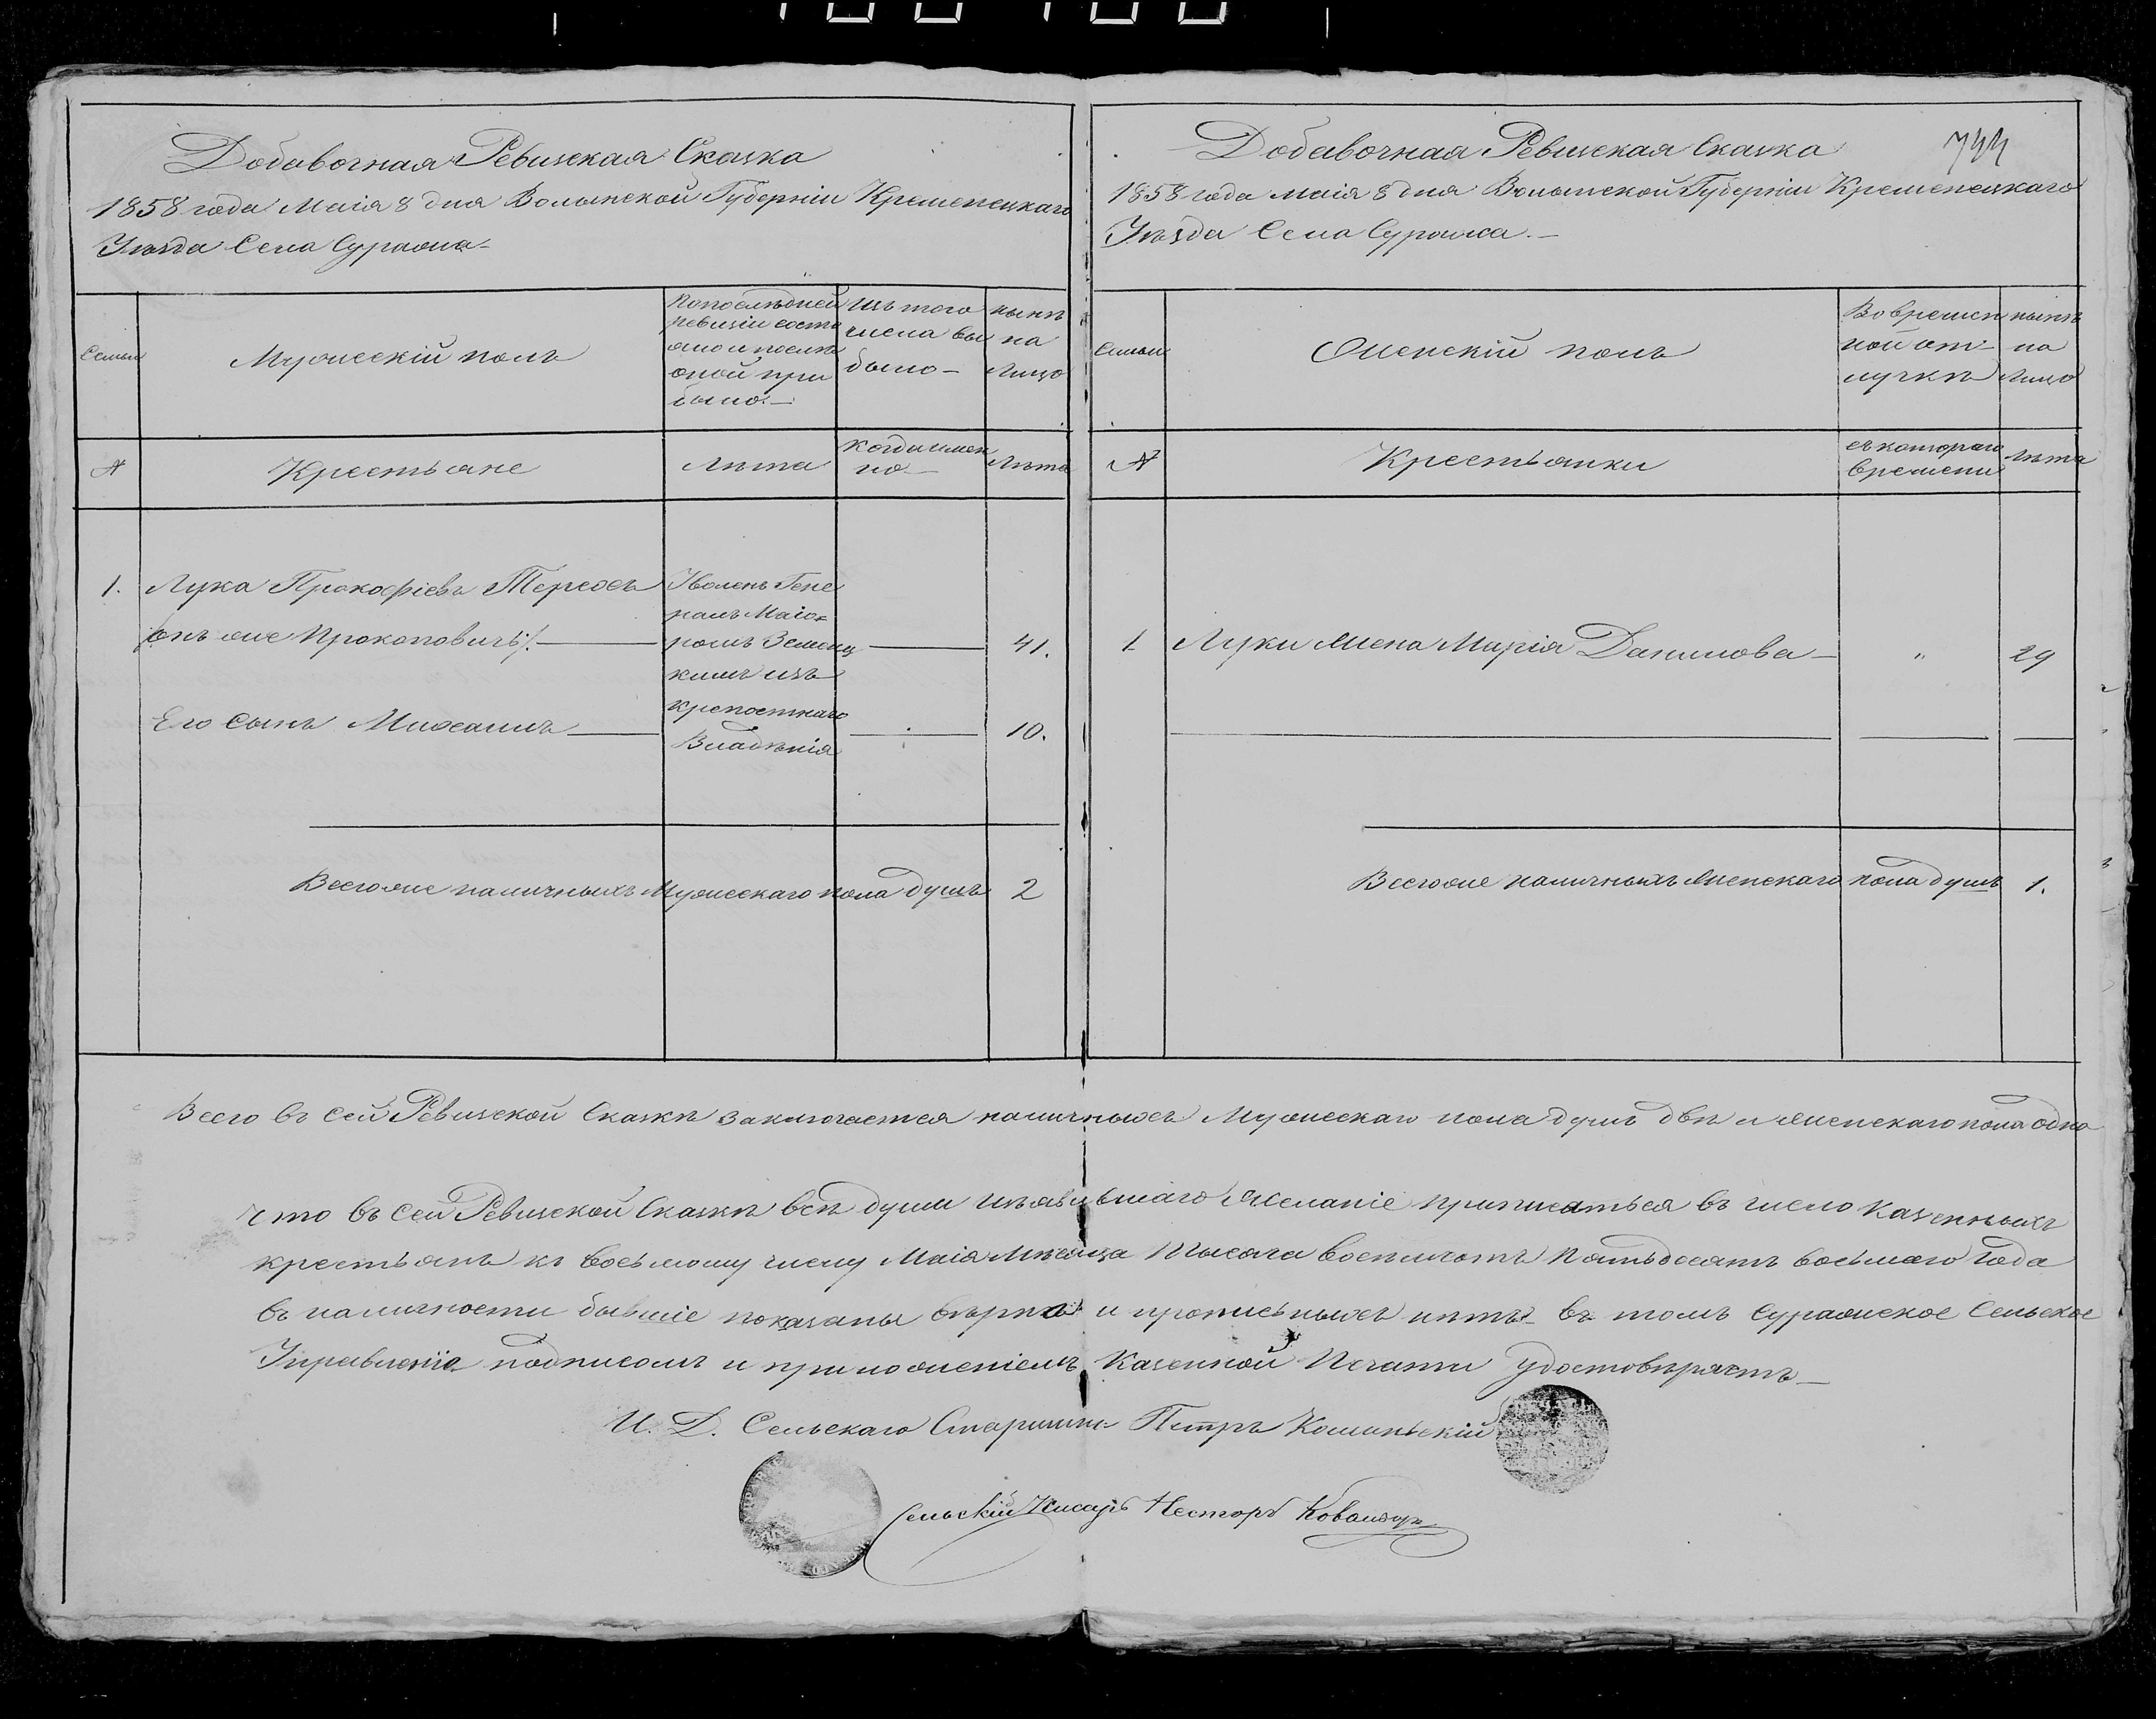 Добавочная Ревизская Сказка
1858 года Маія 8 дня Волынской Губерніи Кременецкаго
Уѣзда Села Суража
Семьи
Мужескій полъ
По послѣдней
ревизіи состо
яло и послѣ
оной при
было
Изъ того
числа вы
было
нынѣ
на
лицо
№
Крестьяне
Лѣта
Когда имен
но
Лѣта
1. Лука Прокофіевъ
онъ же Прокоповичъ 41.
Его сынъ Михаилъ 10.
Уволенъ Гене
ралъ Маіо
ромъ
кимъ изъ
крепостнаго
Владѣнія
Всего же наличныхъ Мужескаго пола душъ 2
Добавочная Ревизская Сказка 744
1858 года маія 8 дня Волынской Губерніи Кременецкаго
Уѣзда Села Суража
Семьи
Женскій полъ
Во времен
ной от
лучкѣ
нынѣ
на
лицо
№
Крестьянки
съ котораго
времени
лѣта
1 Луки жена Марія Данилова " 29
Всего же наличныхъ женскаго пола душъ 1.
Всего въ сей Ревизской Сказкѣ заключается наличныхъ Мужескаго пола душъ двѣ и женскаго пола одна
что въ сей Ревизской Сказкѣ всѣ души изъявившаго желаніе приписаться въ число казенныхъ
крестьянъ къ восьмому числу Маія Мѣсяца тысяча восемьсотъ пятьдесятъ восьмаго года
въ наличности бывшіе показаны вѣрно и прописныхъ нѣтъ въ томъ Суражское Сельское
Управленіе подписомъ и приложеніемъ Казенной Печати удостовѣряетъ
И. Д. Сельскаго Старшины Петръ
Сельскій Писарь Несторъ